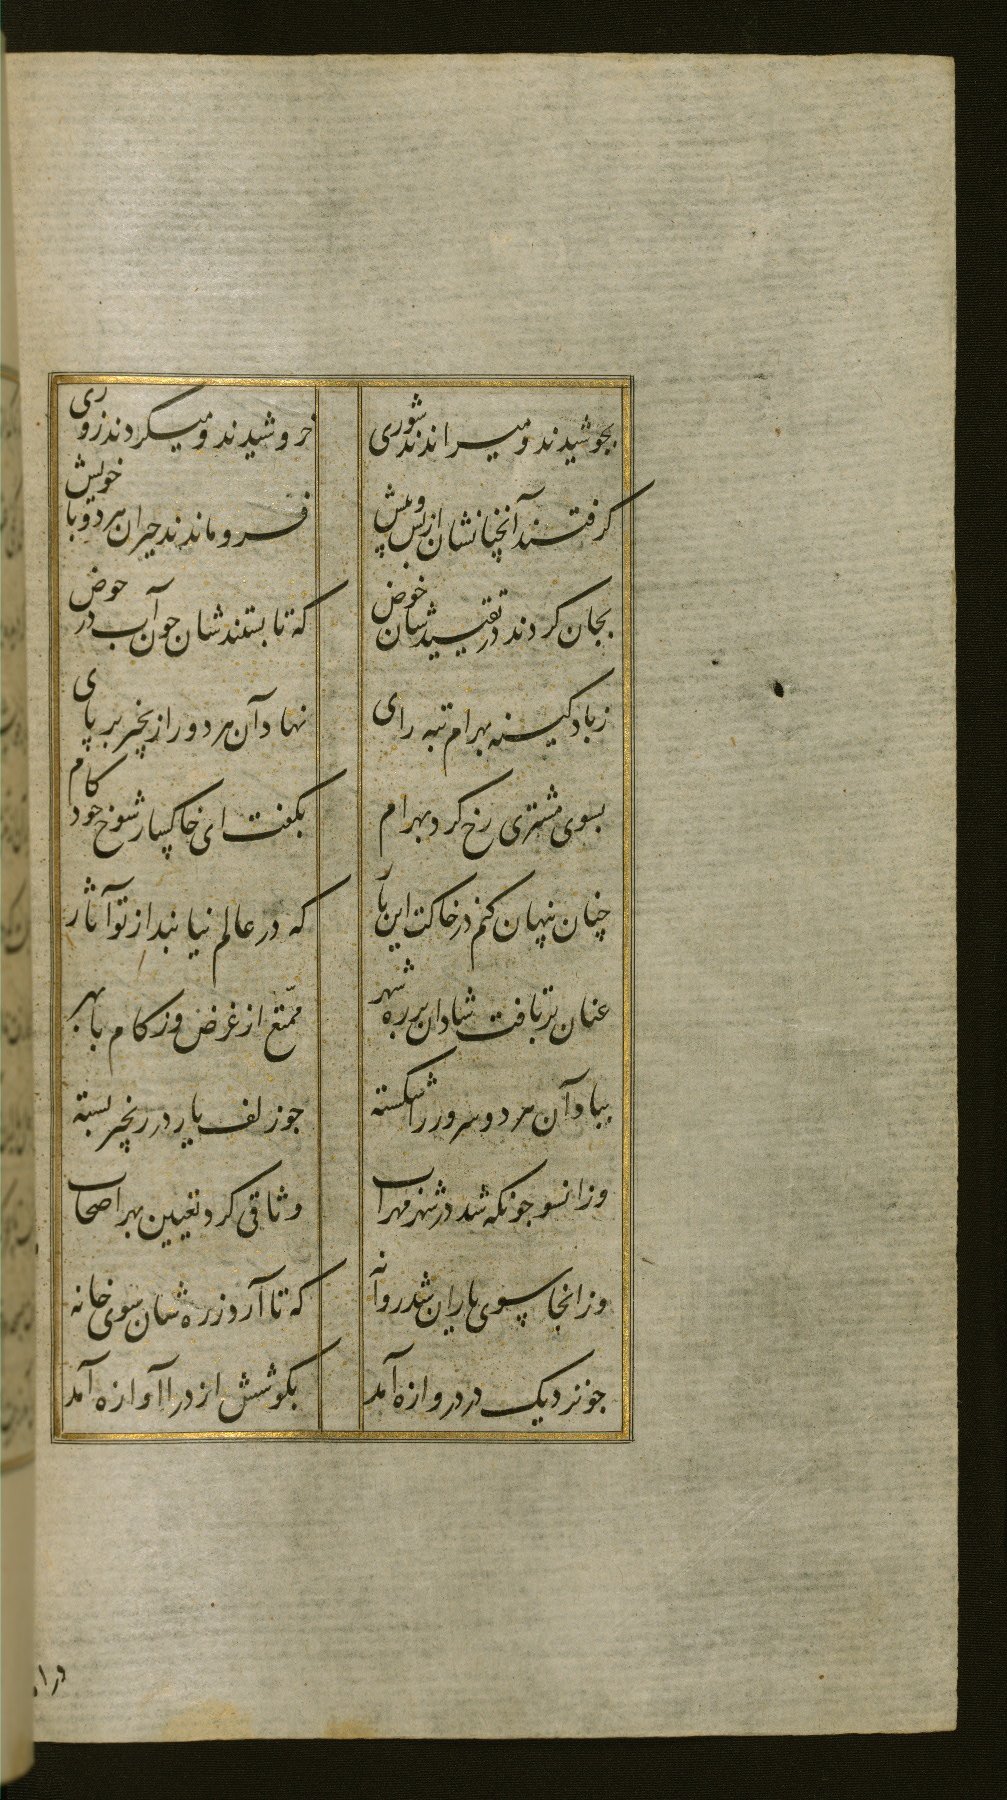 بجوشیدند و میراندند شوری خروشیدند و میکردند زوری
کرفتند آنچنانشان از پس و پیش فرو ماندند حیران هر دو با خویش
بجان کردند در تقیید شان خوض که تا بستندشان جون آب در حوض
زباد کینه بهرام تبه رای نهاد آن هر دو را زنجیر بر پای
بسوی مشتری رخ کرد بهرام بکفت ای خاکسار شوخ خود کام
چنان پنهان کنم در خاکت این بار که در عالم نیابند از تو آثار
عنان برتافت شادان بر ره شهر ممتع از غرض وز کام با بهر
بباد آن هر دو سرور را شکسته جو زلف یار در زنجیر بسته
وز انسو جونکه شد در شهر مهراب وثاقی کرد تعیین بهر اصحاب
وز انجا سوی یاران شد روانه که تا آرد ز ره شان سوی خانه
جو نزدیک در دروازه آمد بکوشش از درا آوازه آمد